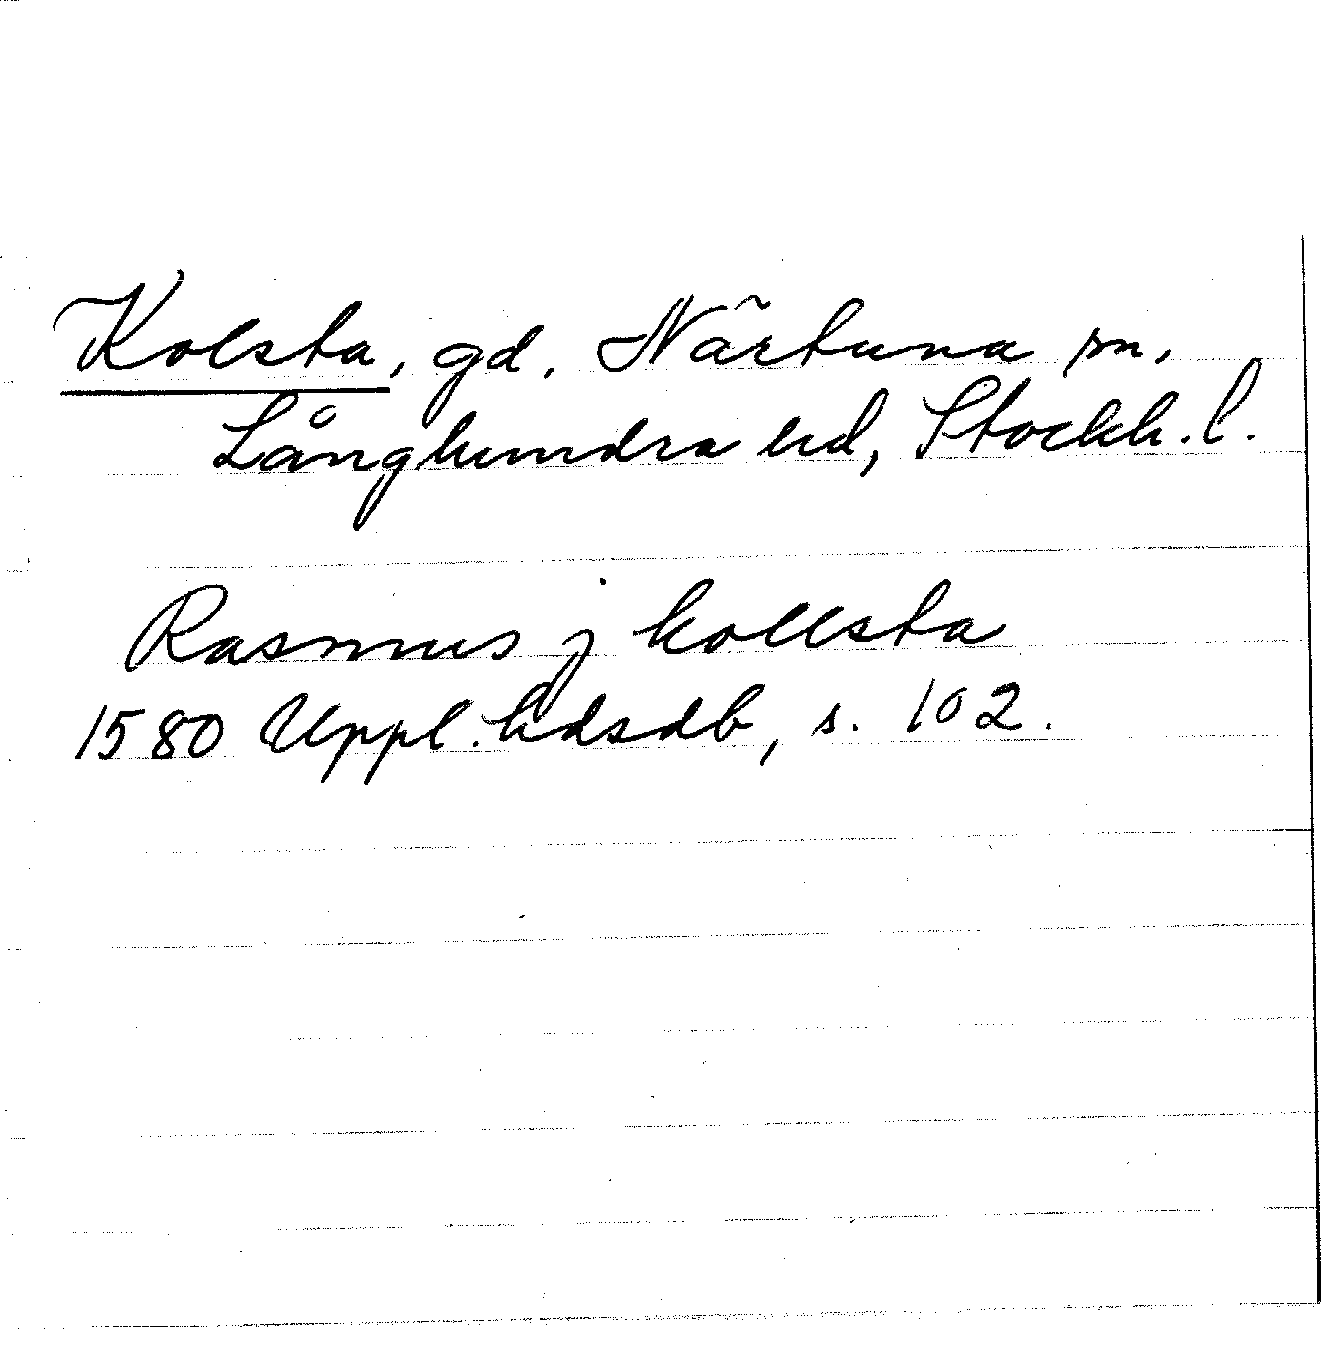 Kolsta, gd. Närtuna sn,
Långhundra hd, Stockh. l.
Rasmus j kollsta
1580 Uppl. hdsdb, s. 102.